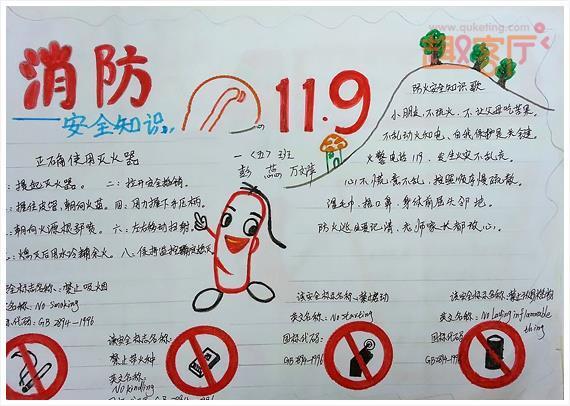 www.quketing.com
趣客厅
消防
安全知识
11.9
一〈五〉班
正确使用灭火器
一：提起灭火器。 二：拉开安全插销。
三：握住皮管，朝向火苗。 四：用力握下手压柄。
五：朝向火源根部喷。 六：左右移动扫射。
七：熄灭后用水冷却余火。 八：保持监控确定熄灭
防火安全知识歌
小朋友，不玩火，不让父母吃苦果。
不乱动火和电，自我保护是关键。
火警电话119，发生火灾不乱走。
心不慌，意不乱，按照顺序慢疏散。
湿毛巾，捂口鼻，身体前屈头邻地。
防火逃生要记清，老师家长都放心。
该安全标志名称：禁止吸烟
英文名称：No Smoking
国标代码：GB 2894-1996
该安全标志名称：
禁止带火种
英文名称：
No kindling
国标代码：
GB 2894-1996
该安全标志名称：禁止启动
英文名称：No starting
国标代码：
GB 2894-1996
该安全标志名称：禁止放易燃物
英文名称：No laying inflammable
thing
国标代码：
GB 2894-1996